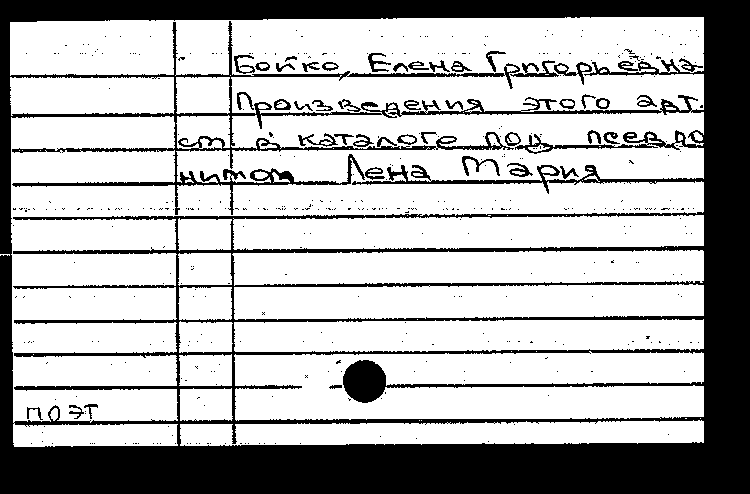 Бойко, Елена Григорьевна
Произведения этого авт.
см. в каталоге под псевдо
нимом Лена Мария
поэт